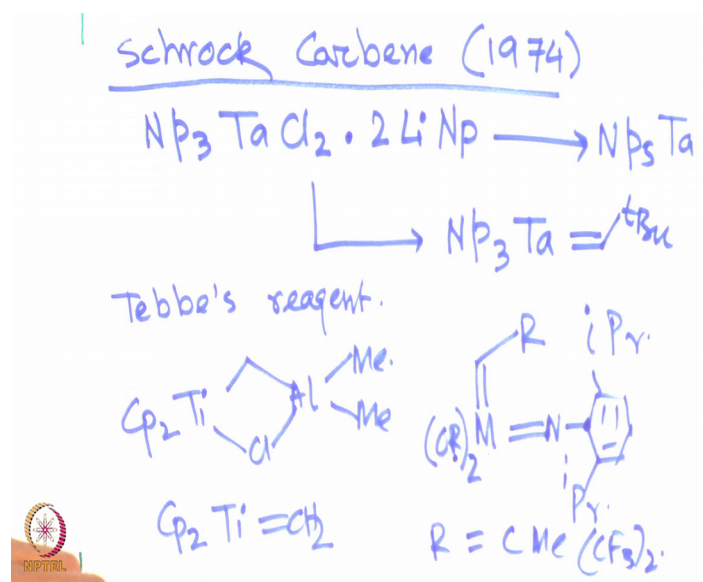 Schrock Carbene (1974)
Np3 Ta Cl2 . 2 Li Np → Np5 Ta
→ Np3 Ta = tBu
Tebbe's reagent.
Cp2 Ti Cl Al Me. Me
R i Pr.
(OR)2 M = N i Pr.
Cp2 Ti = CH2
R = CMe (CF3)2.
NPTEL